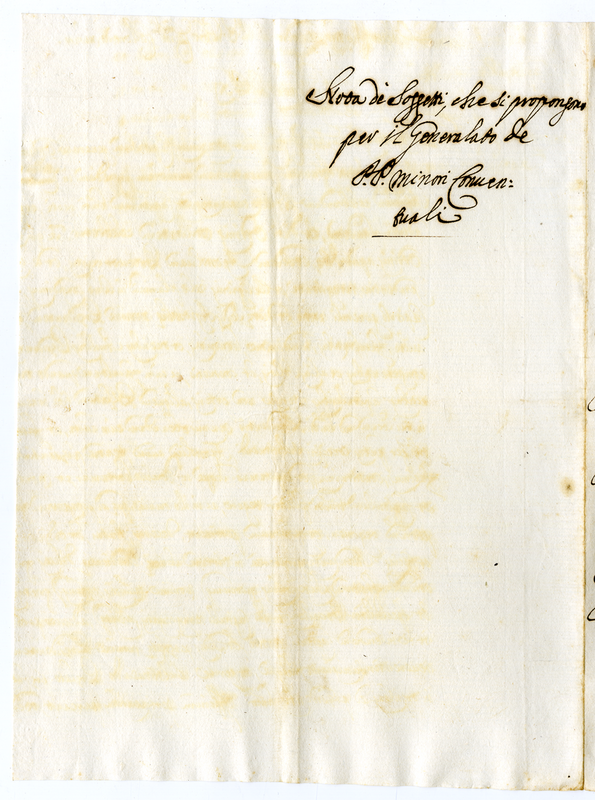 Nota de Soggetti, che si propongono
per il Generalato de
P.P. Minori Conven=
tuali